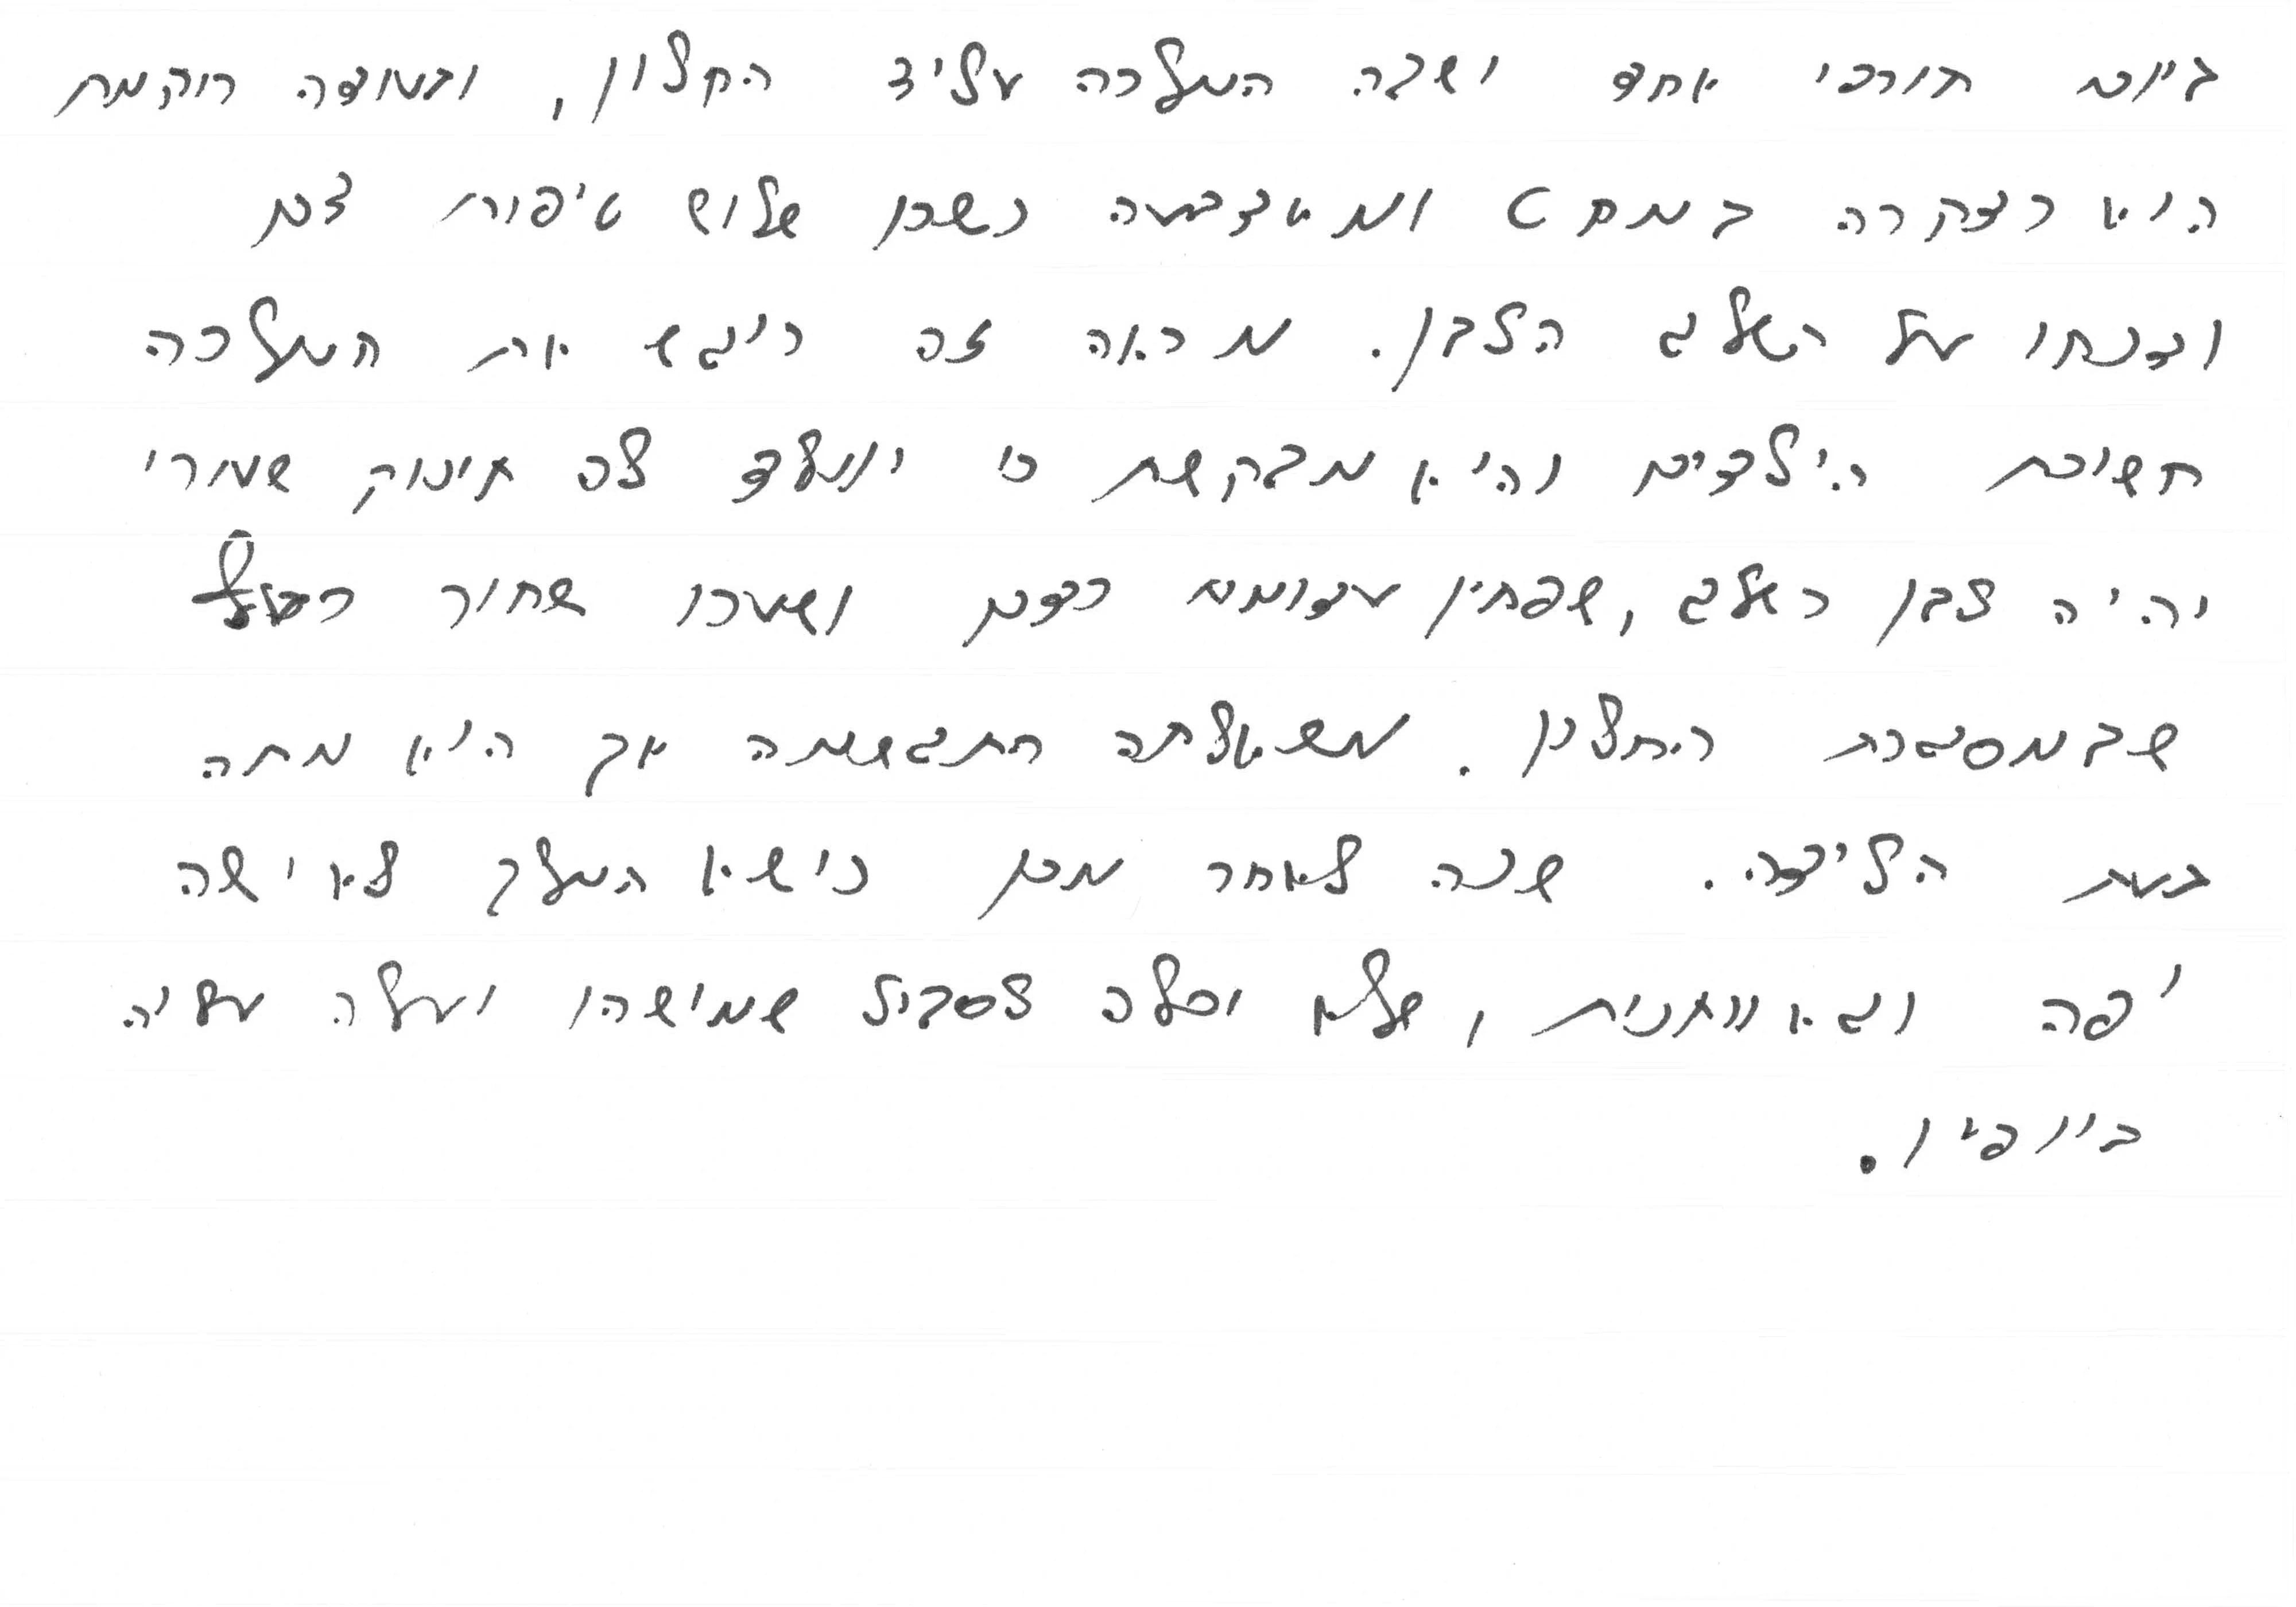 ביום חורפי אחד ישבה המלכה על יד החלון, ובעודה רוקמת
היא נדקרה במחט ומאצבעה נשרו שלוש טיפות דם
וצנחו על השלג הלבן. מראה זה ריגש את המלכה
חשוכת הילדים והיא מבקשת כי ייוולד לה תינוק שעורו
יהיה לבן כשלג, שפתיו אדומות כדם ושערו שחור
שבמסגרת החלון. משאלתה התגשמה אך היא מתה
בעת הלידה. שנה לאחר מכן נישא המלך לאישה
יפה וגאוותנית, שלא יכלה לסבול שמישהו יעלה עליה
ביופיו.